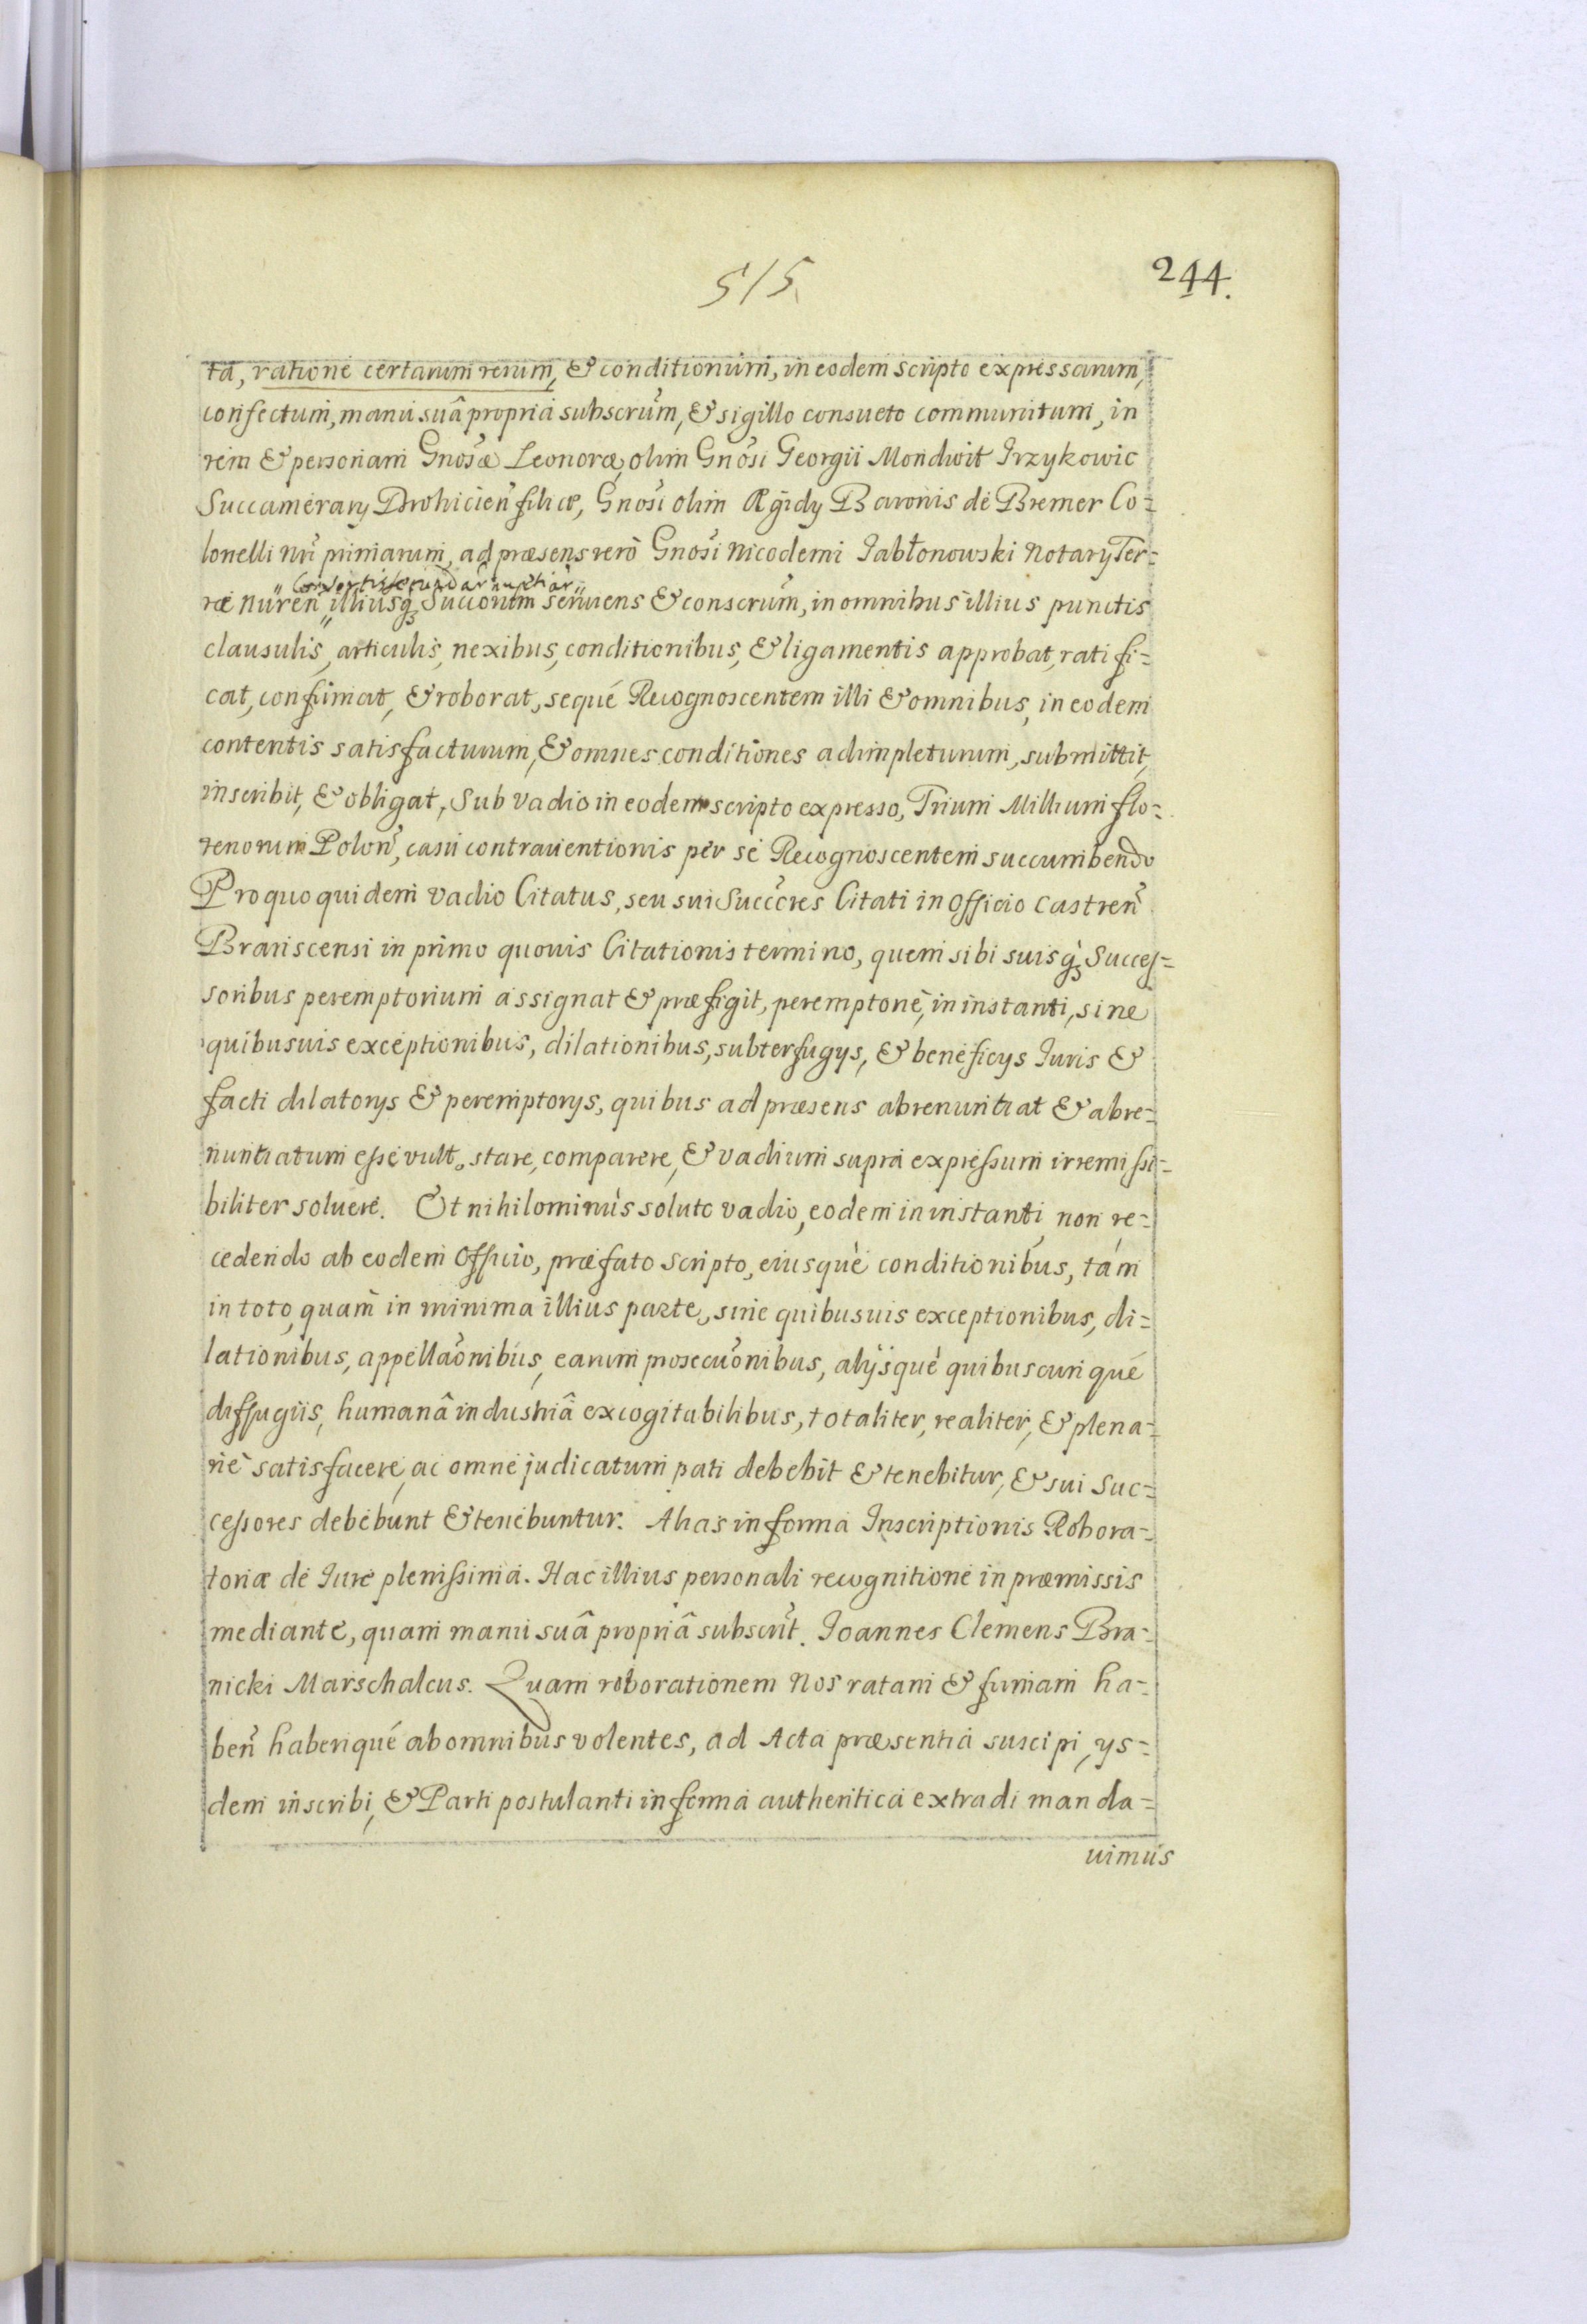 515
244.
ta, ratione certarum rerum, & conditionum, in eodem scripto expressarum,
confectum, manu suâ propria subscrum̃, & sigillo consueto communitum, in
rem & personam Gnosæ Leonoræ, olim Gnosi Georgii Mondwit Irzykowic
Succamerarÿ Drohicien̄ filiæ, Gnosi olim Ægidÿ Baronis de Bremer Co=
lonelli nr̃i primarum, ad præsens verò Gnosi Nicodemi Jabłonowski Notarÿ Ter=
"Consortis secundar̃ nuptiar̃"
ræ Nuren̄ " illiusq̀ꝫ Succorum serviens & conscrum̃, in omnibus illius punctis
clausulis, articulis, nexibus, conditionibus, & ligamentis approbat, ratifi=
cat, confirmat, & roborat, sequé Recognoscentem illi & omnibus, in eodem
contentis satisfacturum, & omnes conditiones adimpleturum, submittit,
inscribit, & obligat, Sub vadio in eodem scripto expresso, Trium Millium flo=
renorum Polon̄, casu contraventionis per se Recognoscentem succumbendo
Pro quo quidem vadio Citatus, seu sui Succc̃res Citati in Officio Castren̄
Branscensi in primo quovis Citationis termino, quem sibi suisq̀ꝫ Succes=
soribus peremptorium assignat & præfigit, peremptoriè, in instanti, sine
quibusvis exceptionibus, dilationibus, subterfugÿs, & beneficÿs Iuris &
facti dilatorÿs & peremptorÿs, quibus ad præsens abrenuntiat & abre=
nuntiatum esse vult, stare, comparere, & vadium supra expressum irremissi=
biliter solvere. Et nihilominùs soluto vadio, eodem in instanti, non re=
cedendo ab eodem Officio, præfato scripto, eiusquè conditionibus, tám
in toto, quam̀ in minima illius parte, sine quibusvis exceptionibus, di=
lationibus, appellaõnibus, earum prosecuõnibus, alÿsquè quibuscunqué
diffugiis, humanâ industriâ excogitabilibus, totaliter, realiter, & plena=
riè satisfacere, ac omne judicatum pati debebit & tenebitur, & sui Suc=
cessores debebunt & tenebuntur. Alias in forma Inscriptionis Robora=
toriæ de Iure plenissima. Hac illius personali recognitione in præmissis
mediante, quam manu suâ propriâ subscrit̃. Joannes Clemens Bra=
nicki Marschalcus. Quam roborationem Nos ratam & firmam ha=
ben̄ haberiqué ab omnibus volentes, ad Acta præsentia suscipi, ÿs=
dem inscribi, & Parti postulanti in forma authentica extradi manda=
vimus